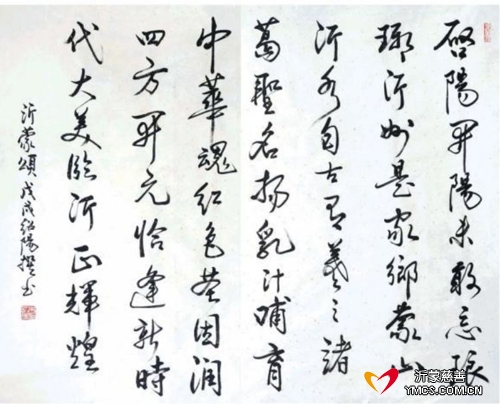 啓陽開陽未敢忘琅
琊沂州是家鄉蒙山
沂水自古有羲之諸
葛聖名揚乳汁哺育
中華魂紅色基因潤
四方開元恰逢新時
代大美臨沂正輝煌
沂蒙頌 戊戌紹陽撰書
沂蒙慈善
YMCS.COM.CN